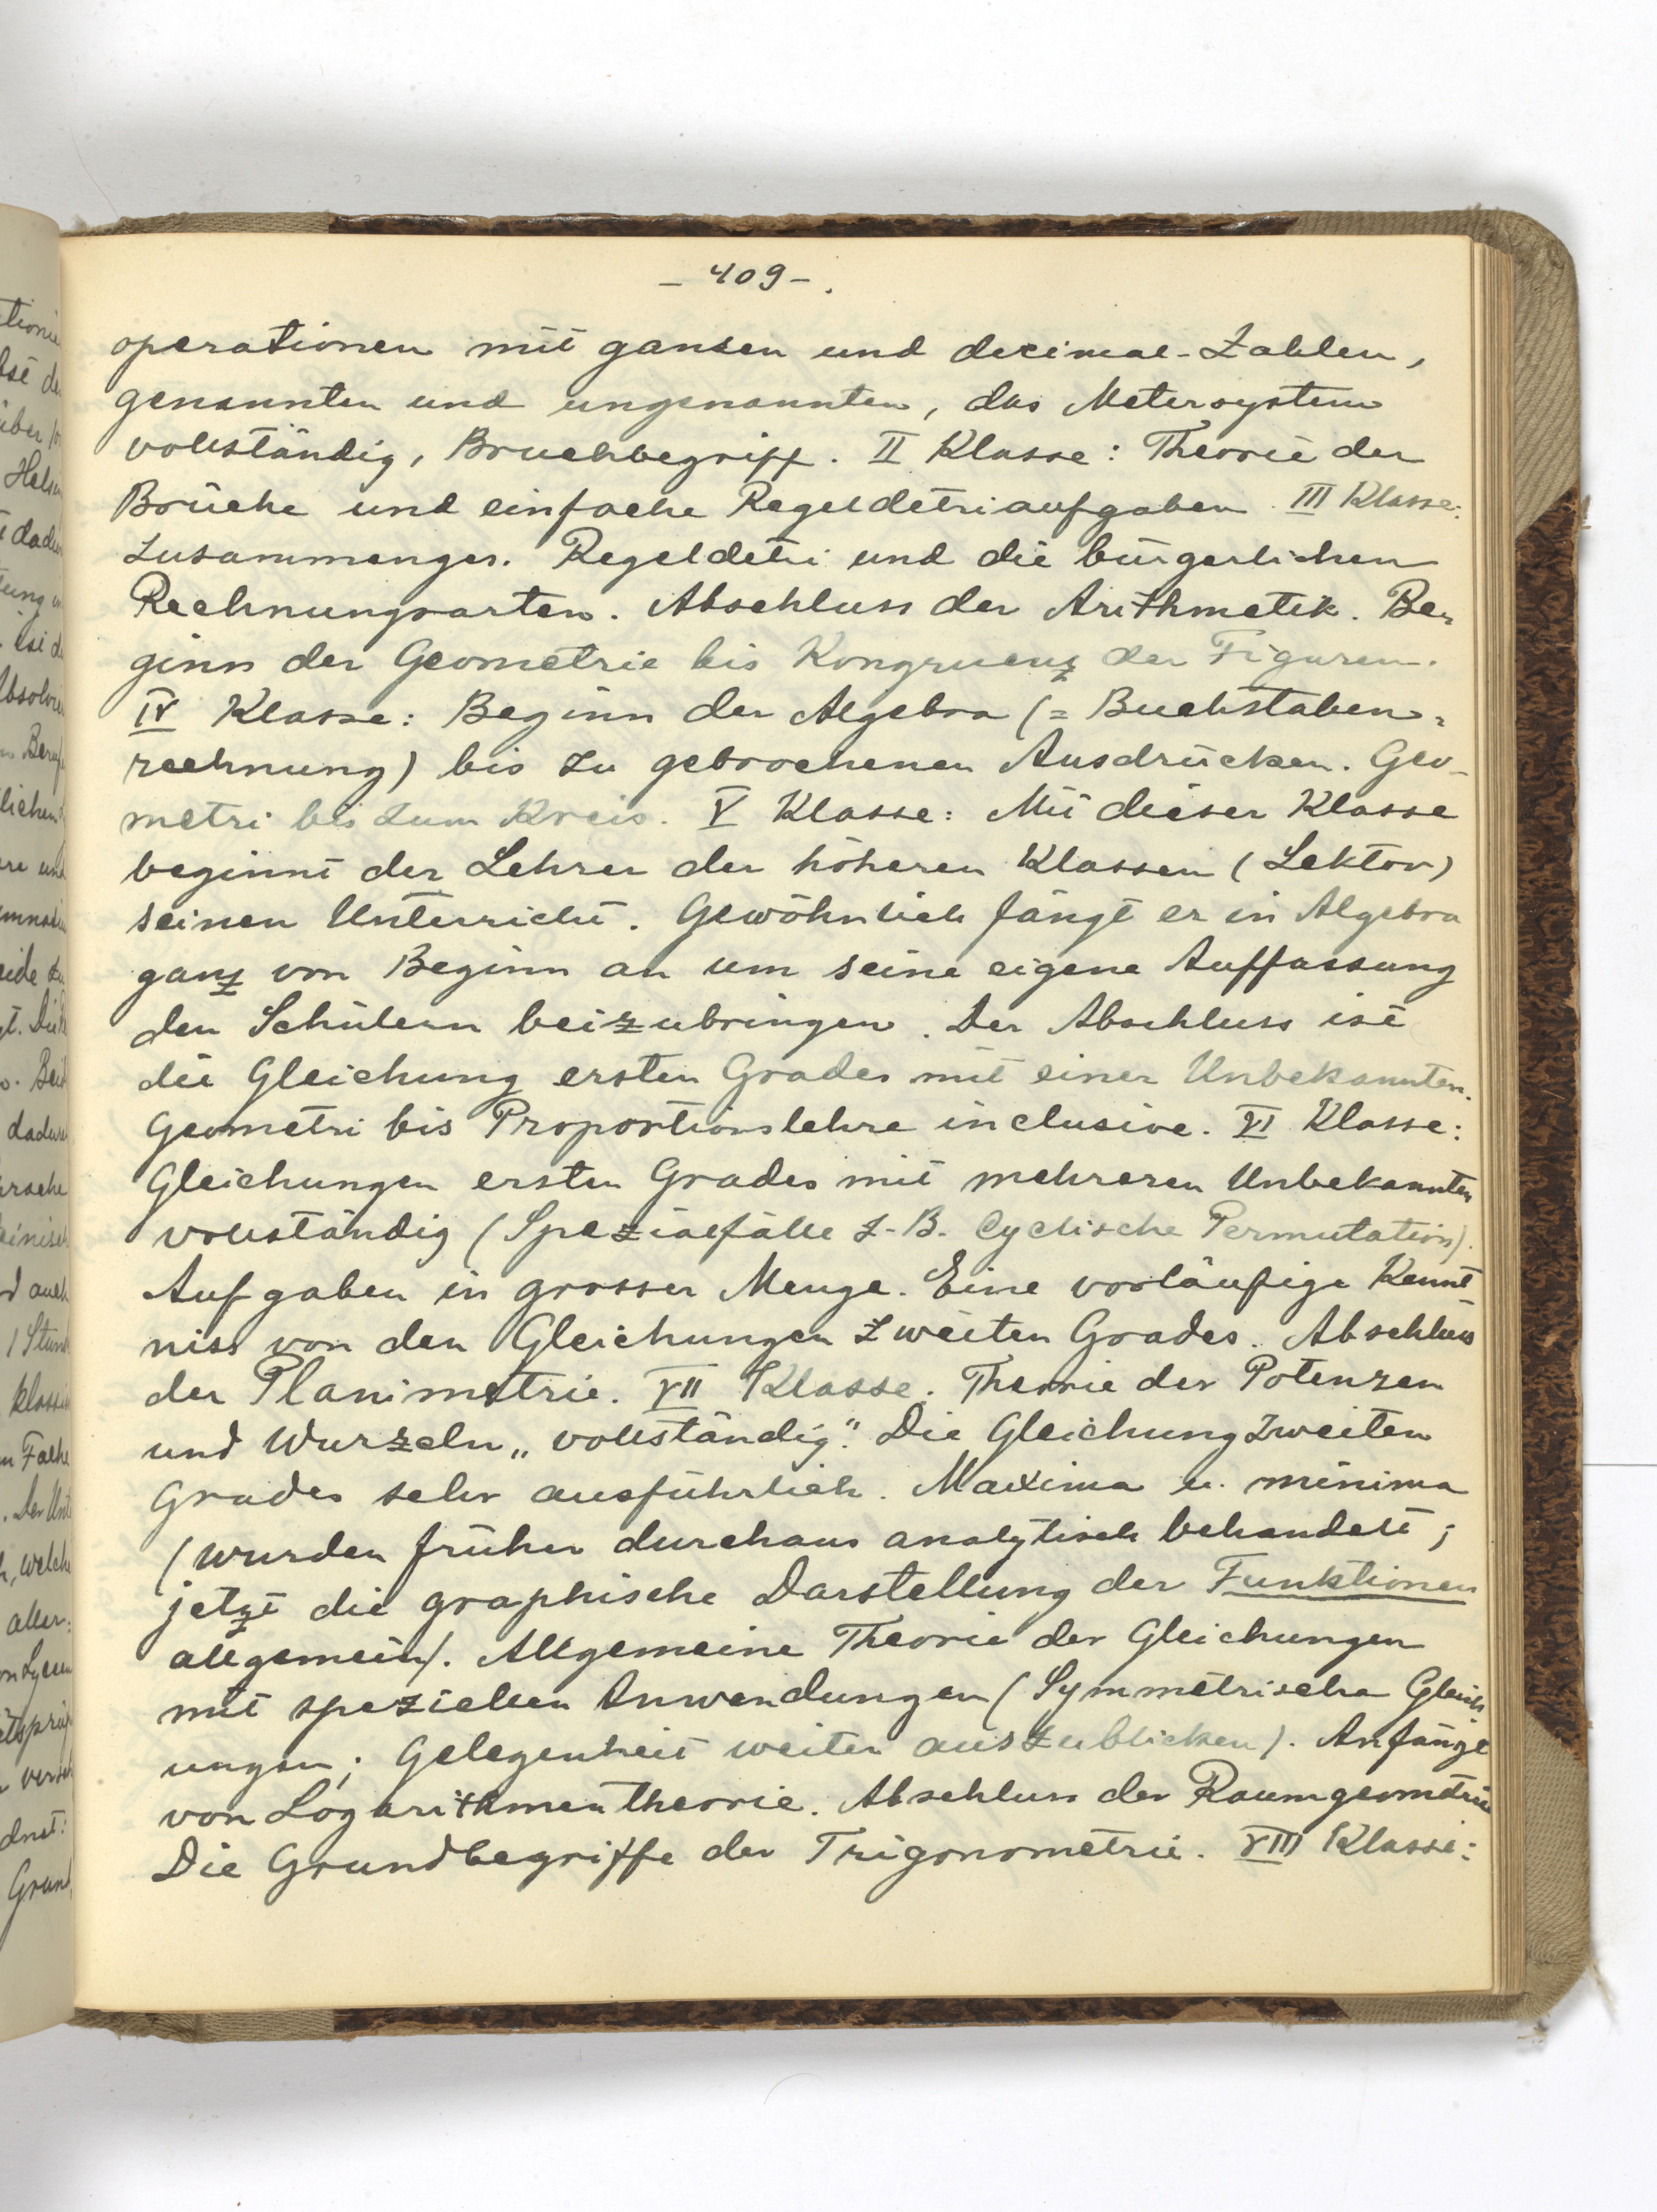 - 409 - .
operationen mit ganzen und decimal-Zahlen,
genannten und ungenannten, das Metersystem
vollständig, Bruchbegriff. II Klasse: Theorie der
Brüche und einfache Regeldetriaufgaben. III Klasse:
Zusammenges. Regeldetri und die bürgerlichen
Rechnungsarten. Abschluss der Arithmetik. Be-
ginn der Geometrie bis Kongruenz der Figuren.
IV Klasse: Beginn der Algebra (= Buchstaben-
rechnung) bis zu gebrochenen Ausdrücken. Geo-
metri bis zum Kreis. V Klasse: Mit dieser Klasse
beginnt der Lehrer der höheren Klassen (Lektor)
seinen Unterricht. Gewöhnlich fängt er in Algebra
ganz von Beginn an um seine eigene Auffassung
den Schülern beizubringen. Der Abschluss ist
die Gleichung ersten Grades mit einer Unbekannten.
Geometri bis Proportionslehre inclusive. VI Klasse:
Gleichungen ersten Grades mit mehreren Unbekannten
vollständig (Spezialfälle z.B. Cyclische Permutation).
Aufgaben in grosser Menge. Eine vorläufige Kennt
niss von den Gleichungen zweiten Grades. Abschluss
der Planimetrie. VII Klasse. Theorie der Potenzen
und Wurzeln „vollständig". Die Gleichung zweiten
Grades sehr ausführlich. Maxima u. minima
(wurden früher durchaus analytisch behandelt;
jetzt die graphische Darstellung der Funktionen
allgemein). Allgemeine Theorie der Gleichungen
mit speziellen Anwendungen (Symmetrische Gleich-
ungen; Gelegenheit weiter auszublicken). Anfänge
von Logarithmentheorie. Abschluss der Raumgeometrie
Die Grundbegriffe der Trigonometrie. VIII Klasse: